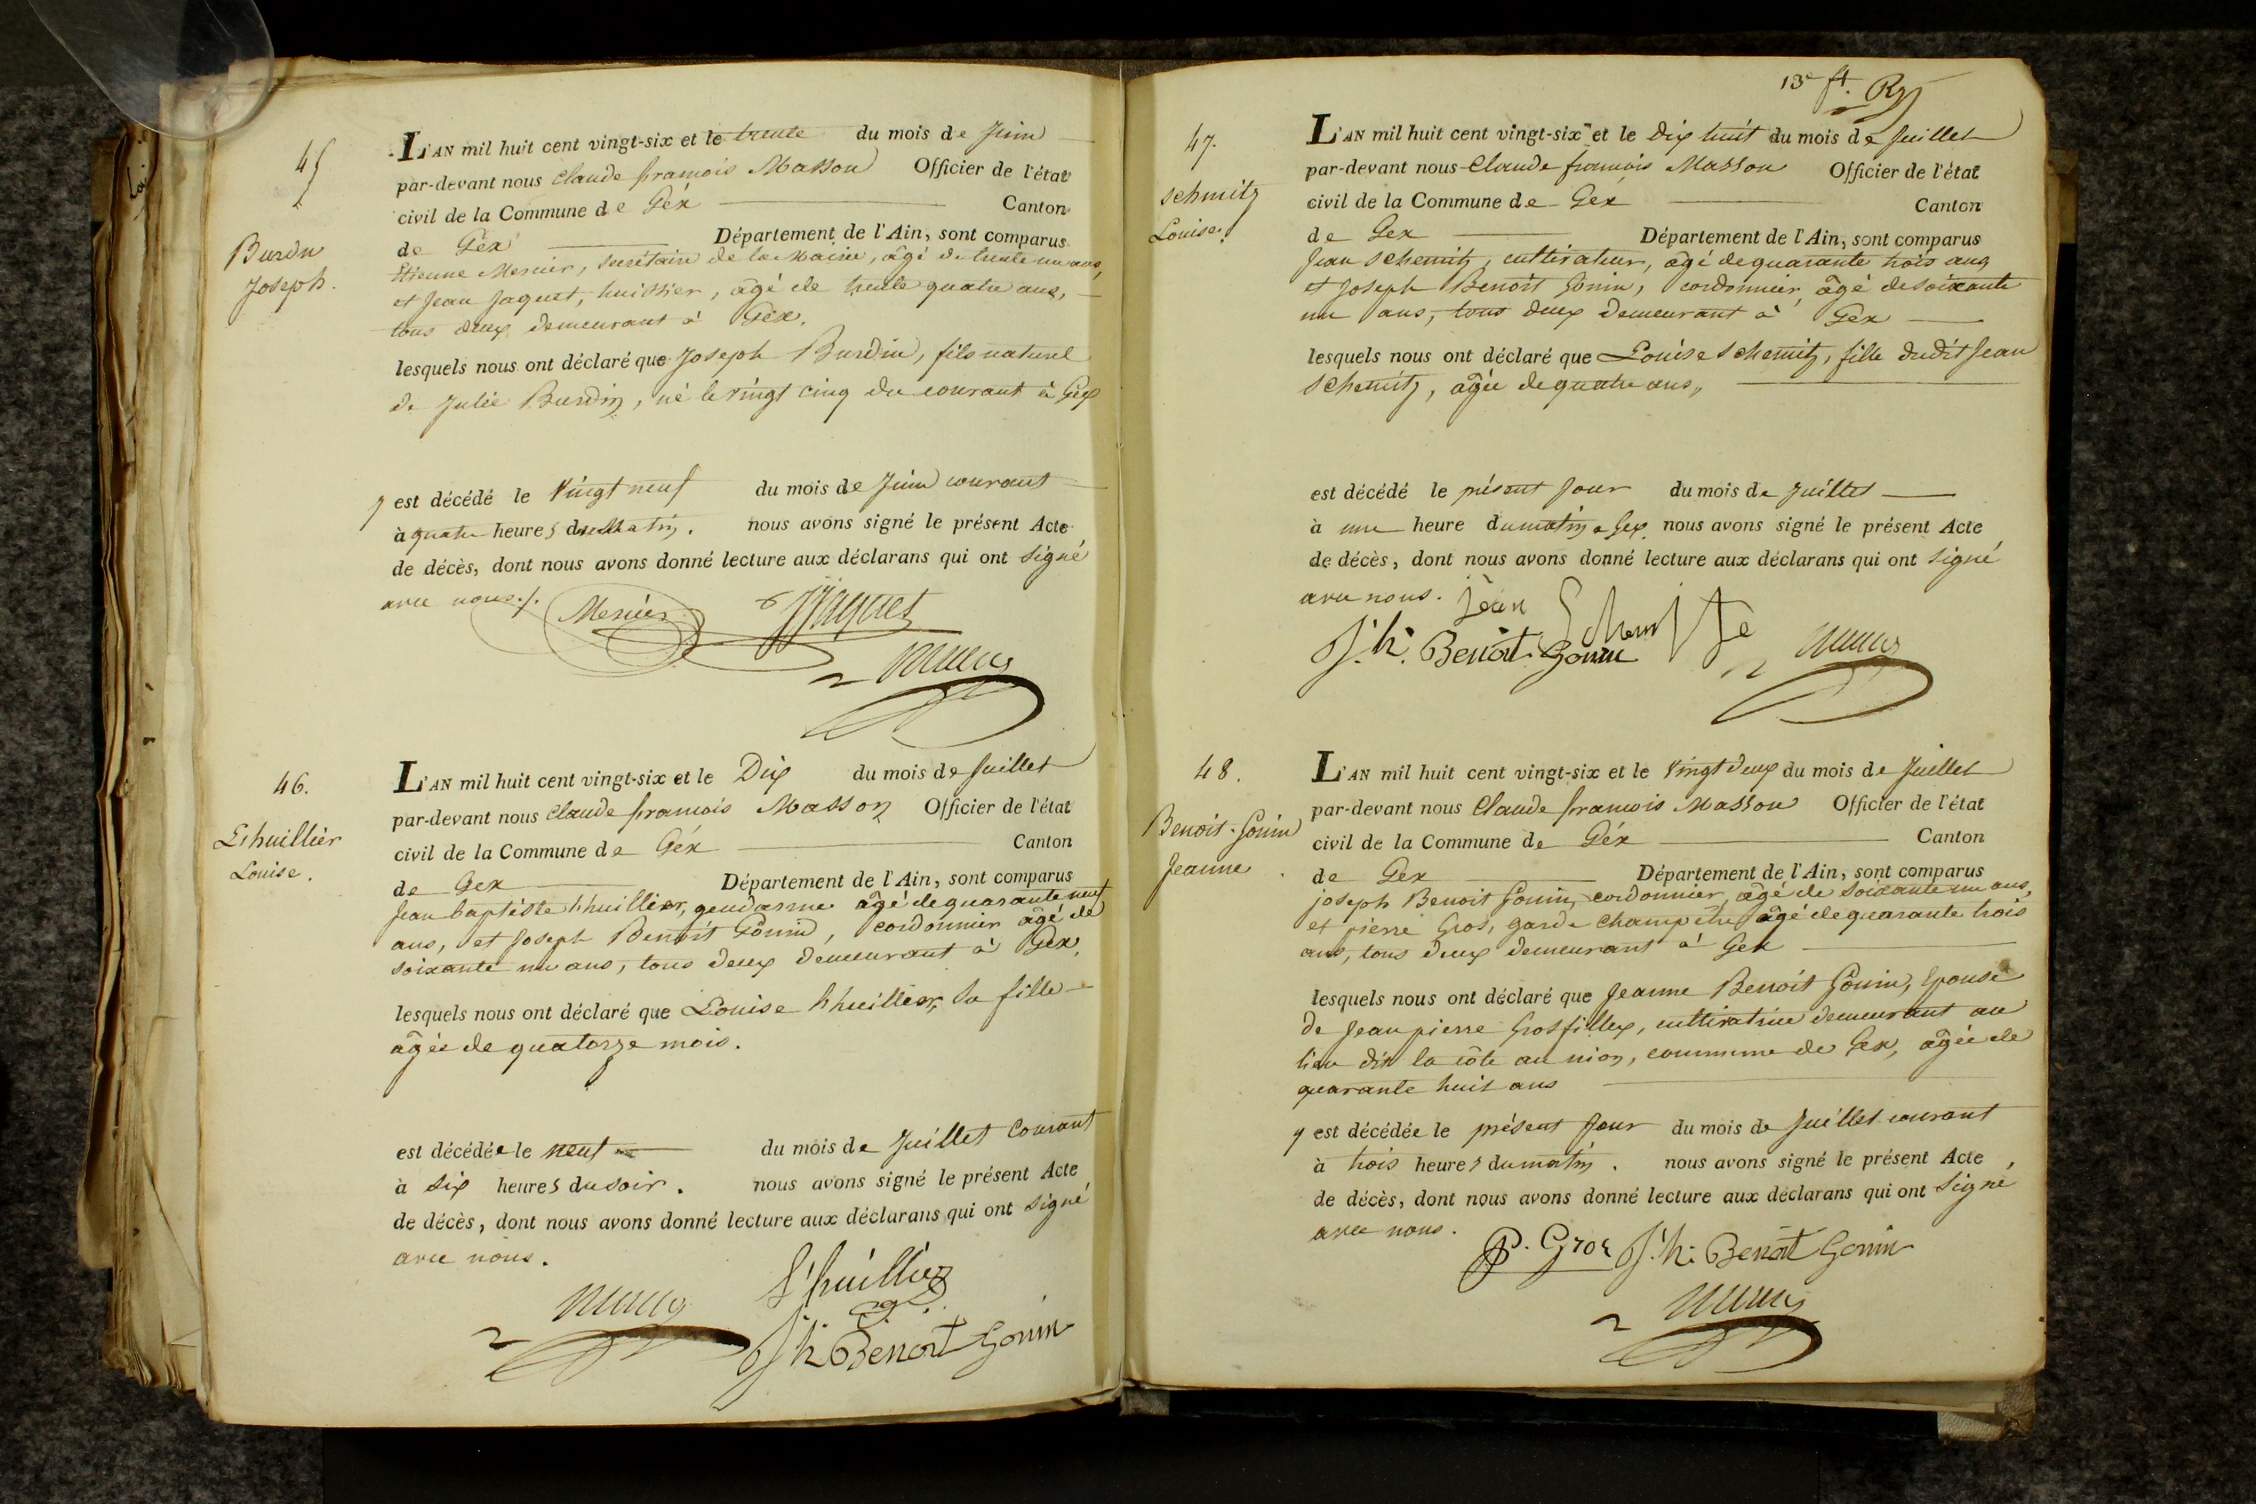 45
Burdin
Joseph.
L'AN mil huit cent vingt-six et le trente du mois de Juin
par-devant nous Claude françois Masson Officier de l'état
civil de la Commune de Géx Canton
de Géx Département de l'Ain, sont comparus
Etienne Mercier, secrétaire de la Mairie, âgé de trente un ans,
et Jean Jaquet, huissier, âgé de trente quatre ans,
tous deux demeurant à Géx.
lesquels nous ont déclaré que Joseph Burdin, fils naturel
de Julie Burdin, né le vingt cinq du courant à Gex
y est décédé le vingt neuf du mois de Juin courant
à quatre heures du Matin. nous avons signé le présent Acte
de décès, dont nous avons donné lecture aux déclarans qui ont signé
avec nous./.
Mercier Jaquet
46.
Lhuillier
Louise.
L'AN mil huit cent vingt-six et le Dix du mois de Juillet
par-devant nous Claude françois Masson Officier de l'état
civil de la Commune de Géx Canton
de Gex Département de l'Ain, sont comparus
Jean baptiste lhuillier, gendarme âgé de quarante neuf
ans, et Joseph Benoit Gonin, cordonnier âgé de
soixante un ans, tous deux demeurant à Gex,
lesquels nous ont déclaré que Louise lhuillier, sa fille
âgée de quatorze mois.
est décédée le neuf du mois de Juillet Courant
à six heures du soir. nous avons signé le présent Acte
de décès, dont nous avons donné lecture aux déclarans qui ont signé
avec nous.
l'huillier
Jh Benoit Gonin
13e ft.
47.
schmitz
Louise.
L'AN mil huit cent vingt-six et le dix huit du mois de Juillet
par-devant nous Claude françois Masson Officier de l'état
civil de la Commune de Géx Canton
de Gex Département de l'Ain, sont comparus
Jean schemitz, cultivateur, âgé de quarante trois ans
et Joseph Benoit Gonin, cordonnier âgé de soixante
un ans, tous deux demeurant à Gex
lesquels nous ont déclaré que Louise schemitz, fille dudit Jean
schemitz, âgée de quatre ans,
est décédé le présent Jour du mois de Juillet
à une heure du matin à Gex. nous avons signé le présent Acte
de décès, dont nous avons donné lecture aux déclarans qui ont signé
avec nous. Jean
Jh. Benoit Gonin
48.
Benoit-Gonin
Jeanne
L'AN mil huit cent vingt-six et le vingt deux du mois de Juillet
par-devant nous Claude françois Masson Officier de l'état
civil de la Commune de Géx Canton
de Gex Département de l'Ain, sont comparus
joseph Benoit Gonin, cordonnier âgé de soixante un ans,
et pierre Gros, garde champêtre âgé de quarante trois
ans, tous deux demeurant à Gex
lesquels nous ont déclaré que Jeanne Benoit Gonin, épouse
de Jean pierre Grosfillex, cultivatrice demeurant au
lieu dit la côte au nion, commune de Gex, âgée de
quarante huit ans
y est décédée le présent Jour du mois de Juillet courant
à trois heures du matin. nous avons signé le présent Acte
de décès, dont nous avons donné lecture aux déclarans qui ont signé
avec nous.
P. Gros Jh. Benoit Gonin